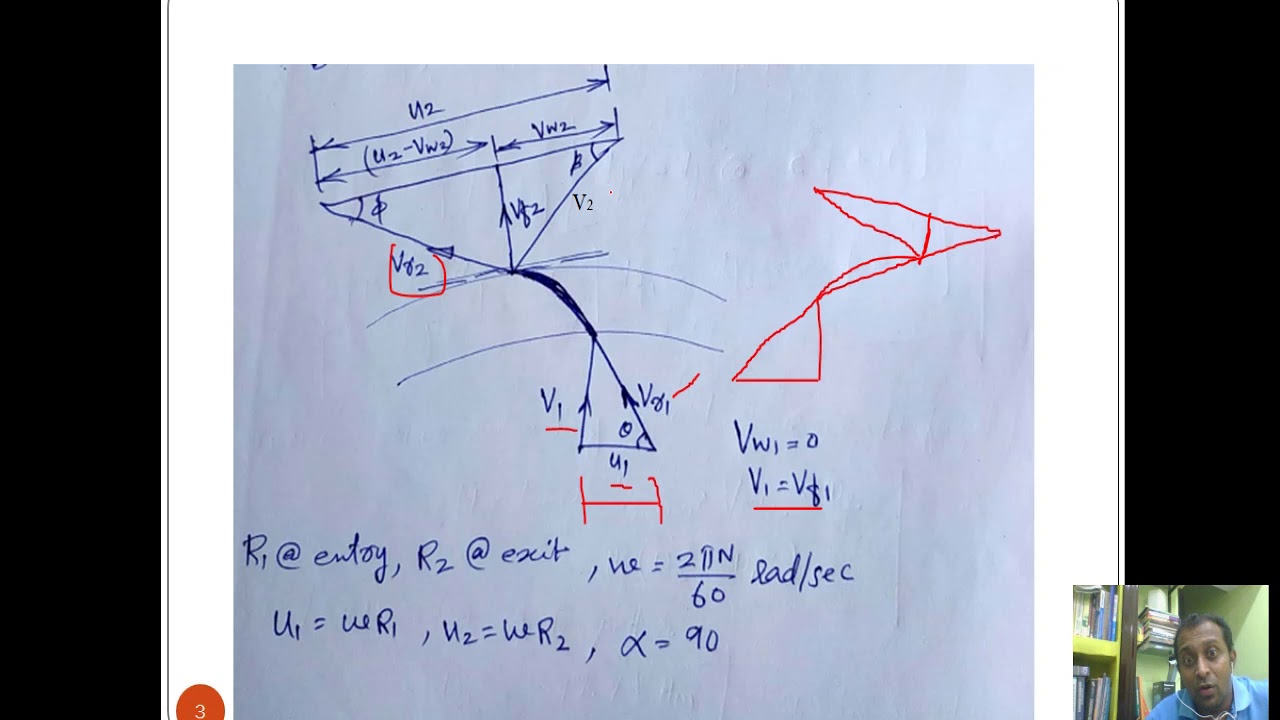 u2
(u2-Vw2)
Vw2
β
ϕ
Vf2
V2
Vr2
V1
Vr1
θ
u1
Vw1 = 0
V1 = Vf1
R1 @ entry, R2 @ exit, ω = 2πN/60 rad/sec
u1 = ωR1, u2 = ωR2, α = 90
3